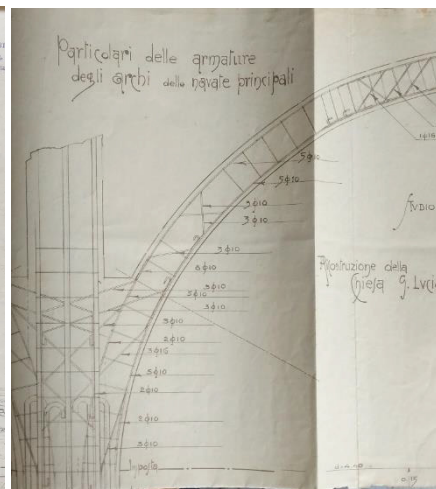 Particolari delle armature
degli archi delle navate principali
5ϕ10
5ϕ10
5ϕ10
3ϕ10
5ϕ10
5ϕ10
5ϕ10
3ϕ10
2ϕ10
3ϕ16
5ϕ10
2ϕ10
2ϕ10
3ϕ10
Imposta
STUDIO
Ricostruzione della
Chiesa S. Luci
0.15